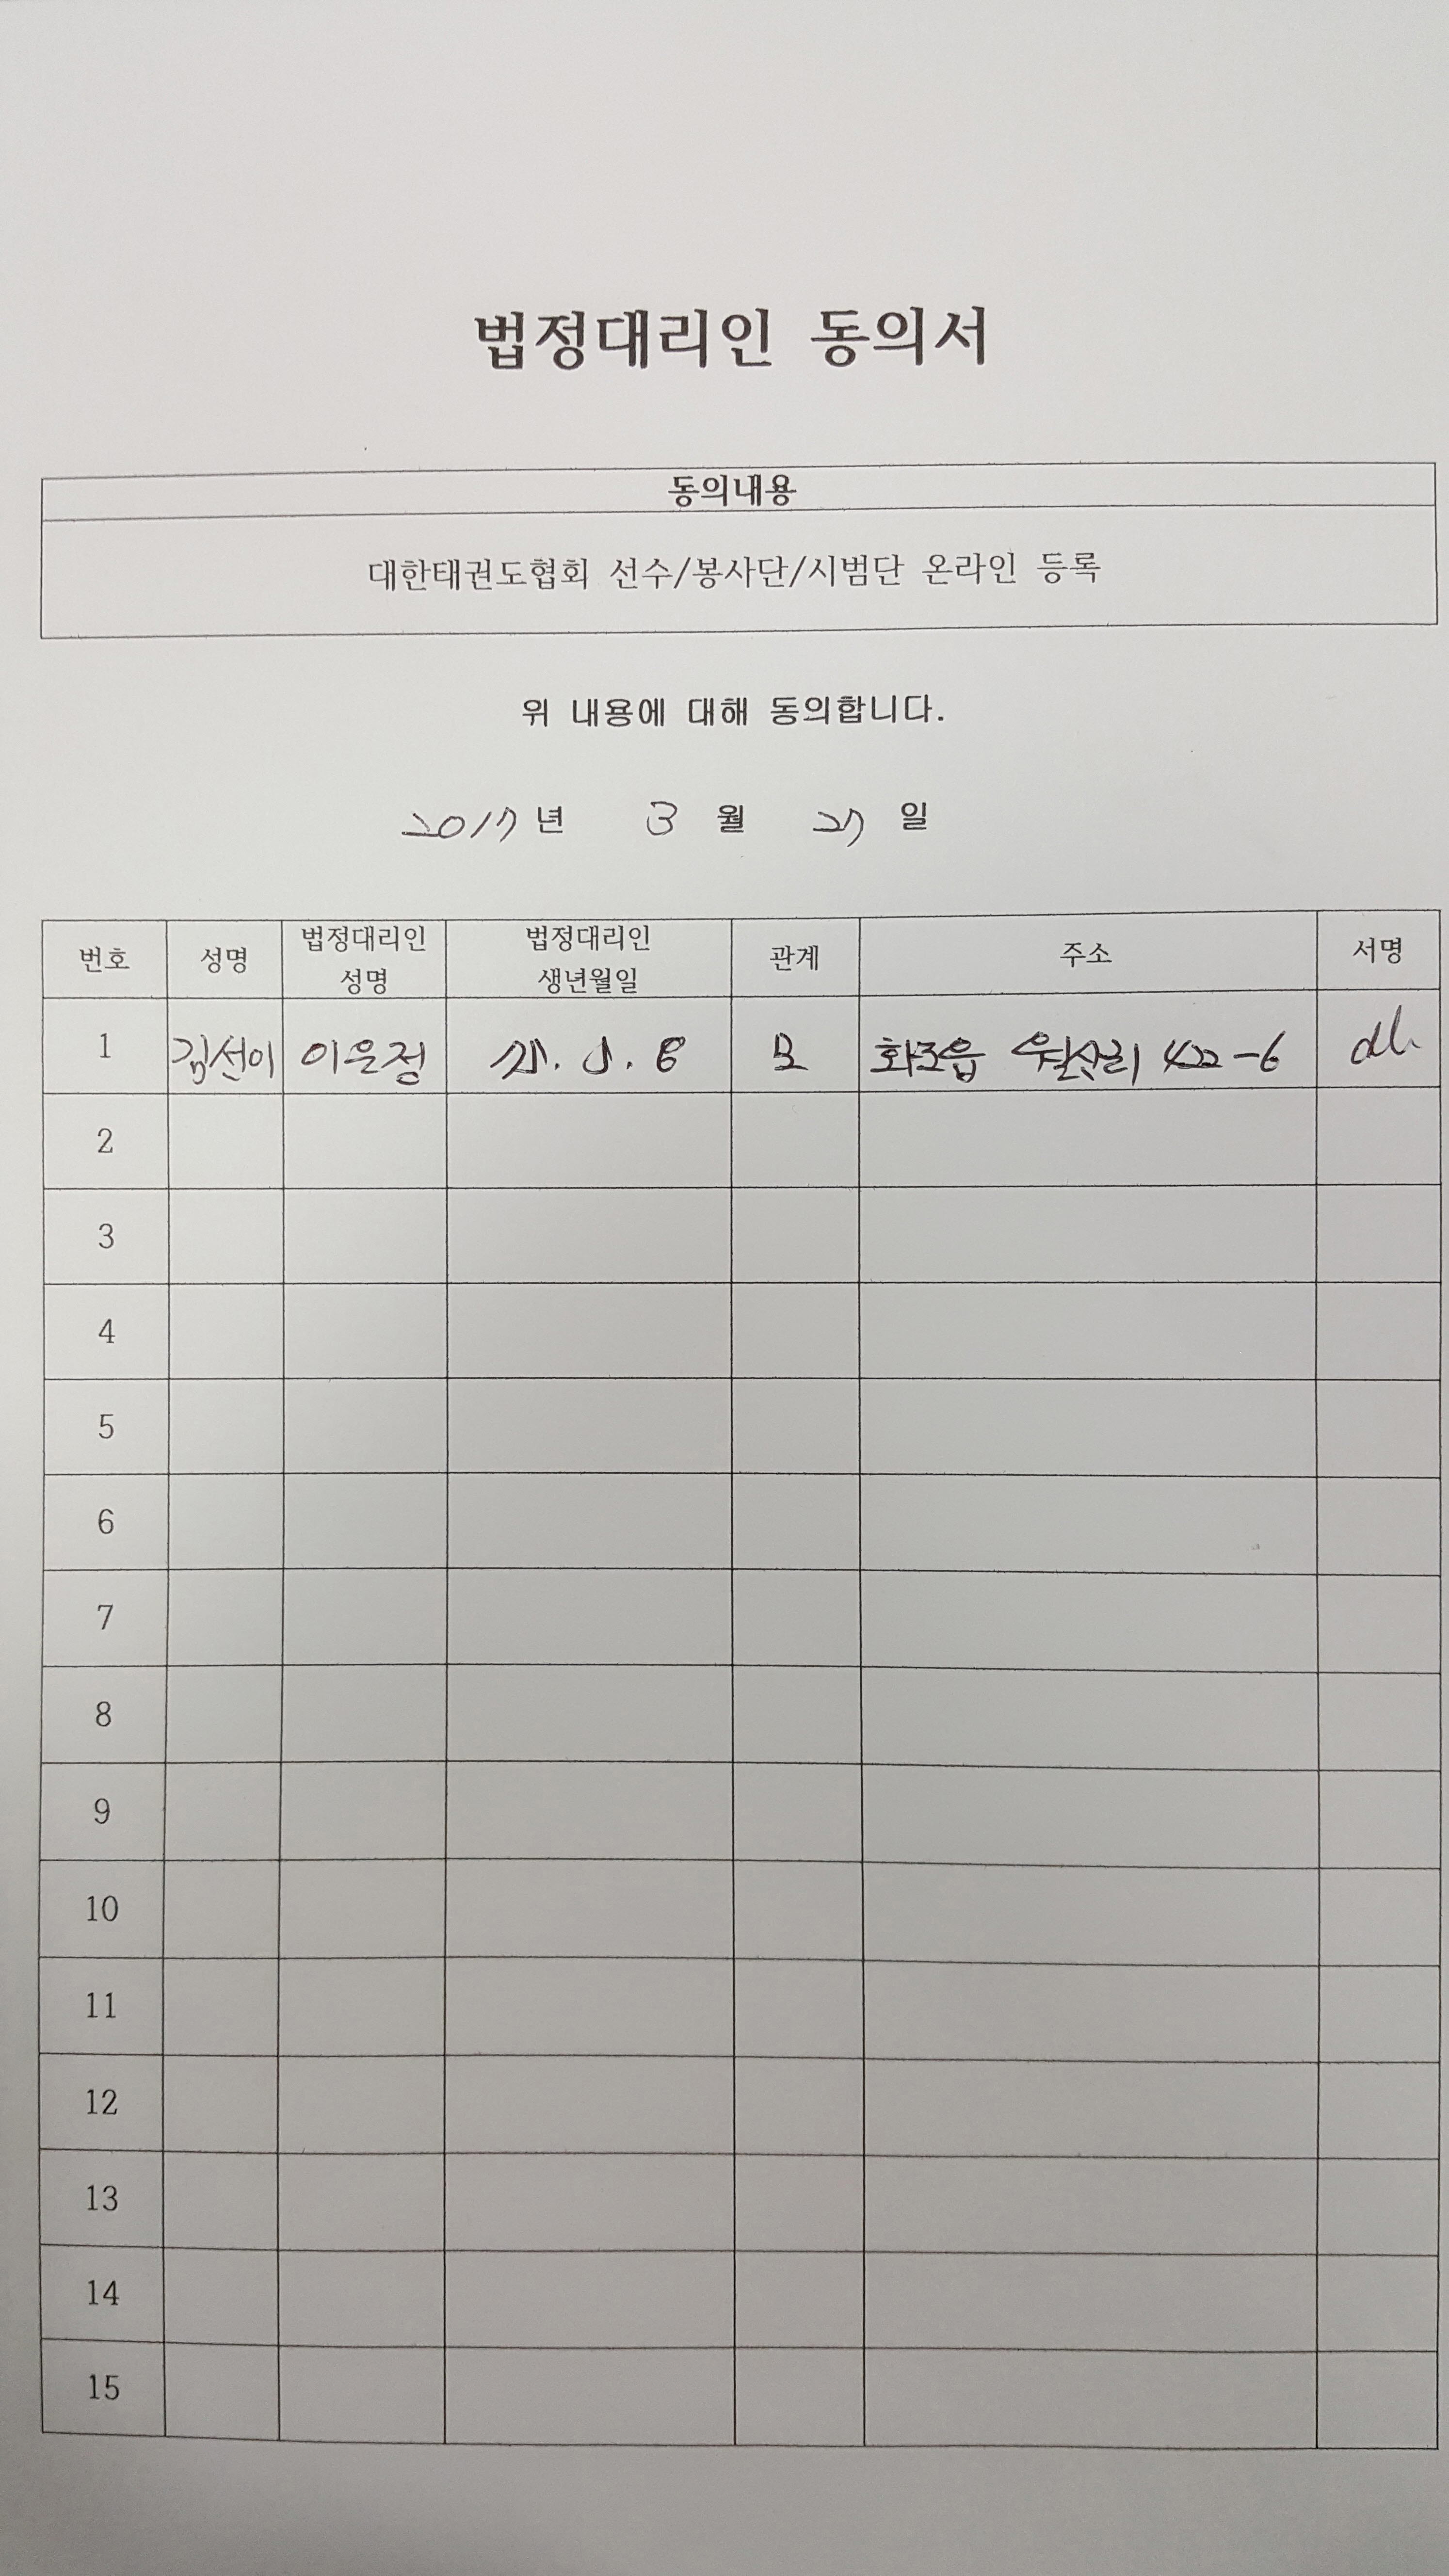 법정대리인 동의서
동의내용
대한태권도협회 선수/봉사단/시범단 온라인 등록
위 내용에 대해 동의합니다.
2017년 3 월 27 일
번호 성명 법정대리인 성명 법정대리인 생년월일 관계 주소 서명
1 김선이 이은정 모 422-6
2
3
4
5
6
7
8
9
10
11
12
13
14
15